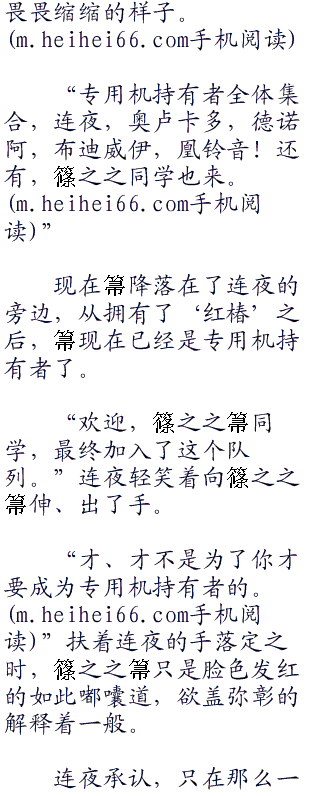 畏畏缩缩的样子。
(m.heihei66.com手机阅读)
“专用机持有者全体集
合，连夜，奥卢卡多，德诺
阿，布迪威伊，凰铃音！还
有，篠之之同学也来。
(m.heihei66.com手机阅
读)”
现在箒降落在了连夜的
旁边，从拥有了‘红椿’之
后，箒现在已经是专用机持
有者了。
“欢迎，篠之之箒同
学，最终加入了这个队
列。”连夜轻笑着向篠之之
箒伸、出了手。
“才、才不是为了你才
要成为专用机持有者的。
(m.heihei66.com手机阅
读)”扶着连夜的手落定之
时，篠之之箒只是脸色发红
的如此嘟囔道，欲盖弥彰的
解释着一般。
连夜承认，只在那么一